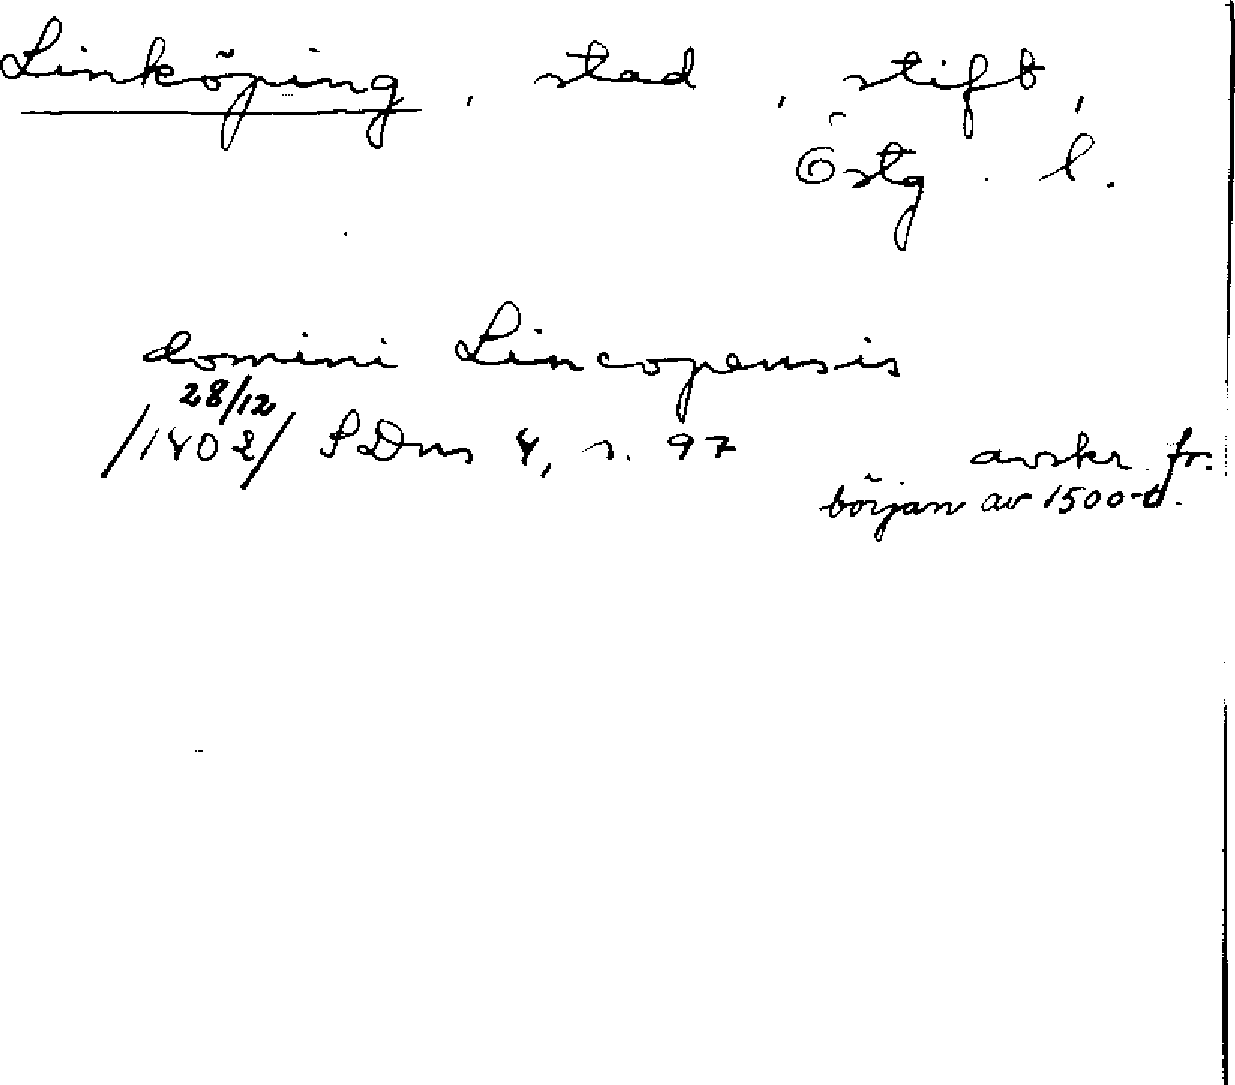 Linköping, stad, stift,
Östg. l.
domini Lincopensis
28/12
/1402/ SDns 4, s. 97
avskr. fr.
början av 1500-t.